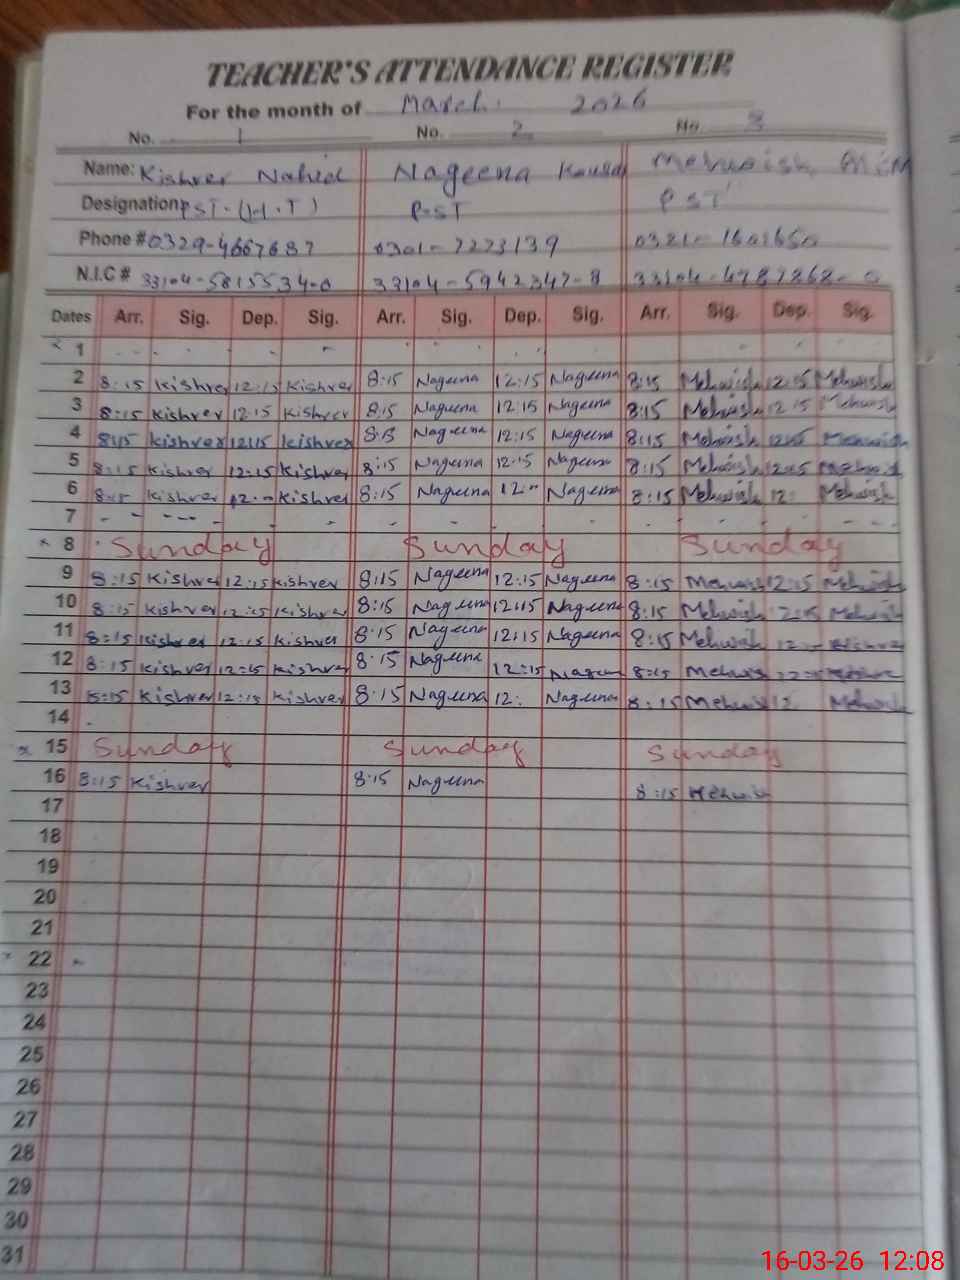 TEACHER'S ATTENDANCE REGISTER
For the month of March. 2026
No. 1 No. 2 No. 3
Name: Kishver Nahid Nageena Kausar Mehwish
Designation PST-(H.T) PST PST
Phone # 0329-4667687 0301-7273139 0321-1601650
N.I.C # 33104-5815534-0 33104-5942347-8 33104-4787868-0
Dates Arr. Sig. Dep. Sig. Arr. Sig. Dep. Sig. Arr. Sig. Dep. Sig.
1
2 8:15 Kishver 12:15 Kishver 8:15 Nageena 12:15 Nageena 8:15 Mehwish 12:15 Mehwish
3 8:15 Kishver 12:15 Kishver 8:15 Nageena 12:15 Nageena 8:15 Mehwish 12:15 Mehwish
4 8:15 Kishver 12:15 Kishver 8:15 Nageena 12:15 Nageena 8:15 Mehwish 12:15 Mehwish
5 8:15 Kishver 12:15 Kishver 8:15 Nageena 12:15 Nageena 8:15 Mehwish 12:15 Mehwish
6 8:15 Kishver 12: Kishver 8:15 Nageena 12: Nageena 8:15 Mehwish 12: Mehwish
7
8 Sunday Sunday Sunday
9 8:15 Kishver 12:15 Kishver 8:15 Nageena 12:15 Nageena 8:15 Mehwish 12:15 Mehwish
10 8:15 Kishver 12:15 Kishver 8:15 Nageena 12:15 Nageena 8:15 Mehwish 12:15 Mehwish
11 8:15 Kishver 12:15 Kishver 8:15 Nageena 12:15 Nageena 8:15 Mehwish
12 8:15 Kishver 12:15 Kishver 8:15 Nageena 12:15 Nageena 8:15 Mehwish
13 8:15 Kishver 12:15 Kishver 8:15 Nageena 12: Nageena 8:15 Mehwish 12 Mehwish
14
15 Sunday Sunday Sunday
16 8:15 Kishver 8:15 Nageena 8:15 Mehwish
17
18
19
20
21
22
23
24
25
26
27
28
29
30
31
16-03-26 12:08